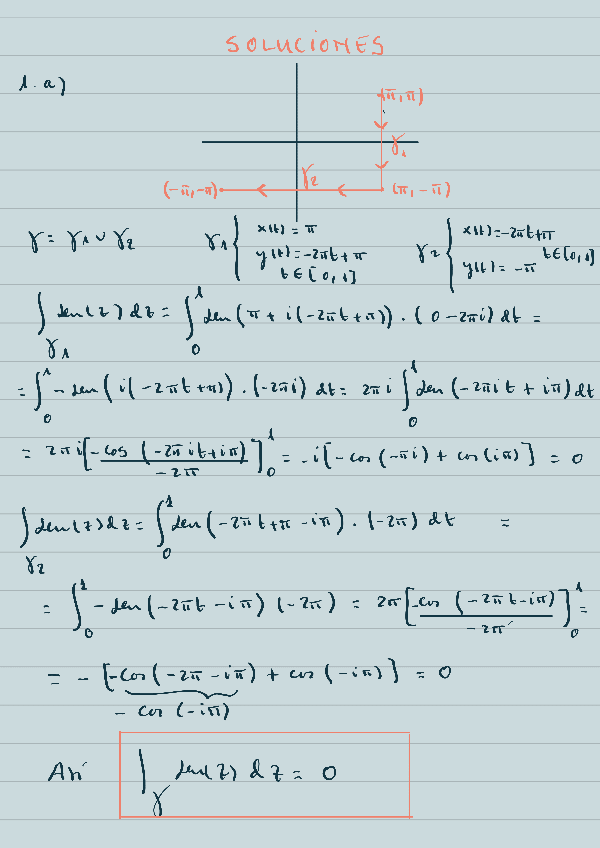 SOLUCIONES
1. a)
(π, π)
γ₁
(-π, -π) γ₂ (π, -π)
γ = γ₁ ∪ γ₂ γ₁ { x(t) = π y(t) = -2πt + π t ∈ [0, 1] γ₂ { x(t) = -2πt + π y(t) = -π t ∈ [0, 1]
∫_γ₁ sen(z) dz = ∫₀¹ sen(π + i(-2πt + π)) · (0 - 2πi) dt =
= ∫₀¹ - sen(i(-2πt + π)) · (-2πi) dt = 2πi ∫₀¹ sen(-2πit + iπ) dt
= 2πi [-cos(-2πit + iπ) / -2π]₀¹ = -i[-cos(-πi) + cos(iπ)] = 0
∫_γ₂ sen(z) dz = ∫₀¹ sen(-2πt + π - iπ) · (-2π) dt =
= ∫₀¹ - sen(-2πt - iπ) (-2π) = 2π [-cos(-2πt - iπ) / -2π]₀¹ =
= - [-cos(-2π - iπ) + cos(-iπ)] = 0
- cos(-iπ)
Así ∫_γ sen(z) dz = 0